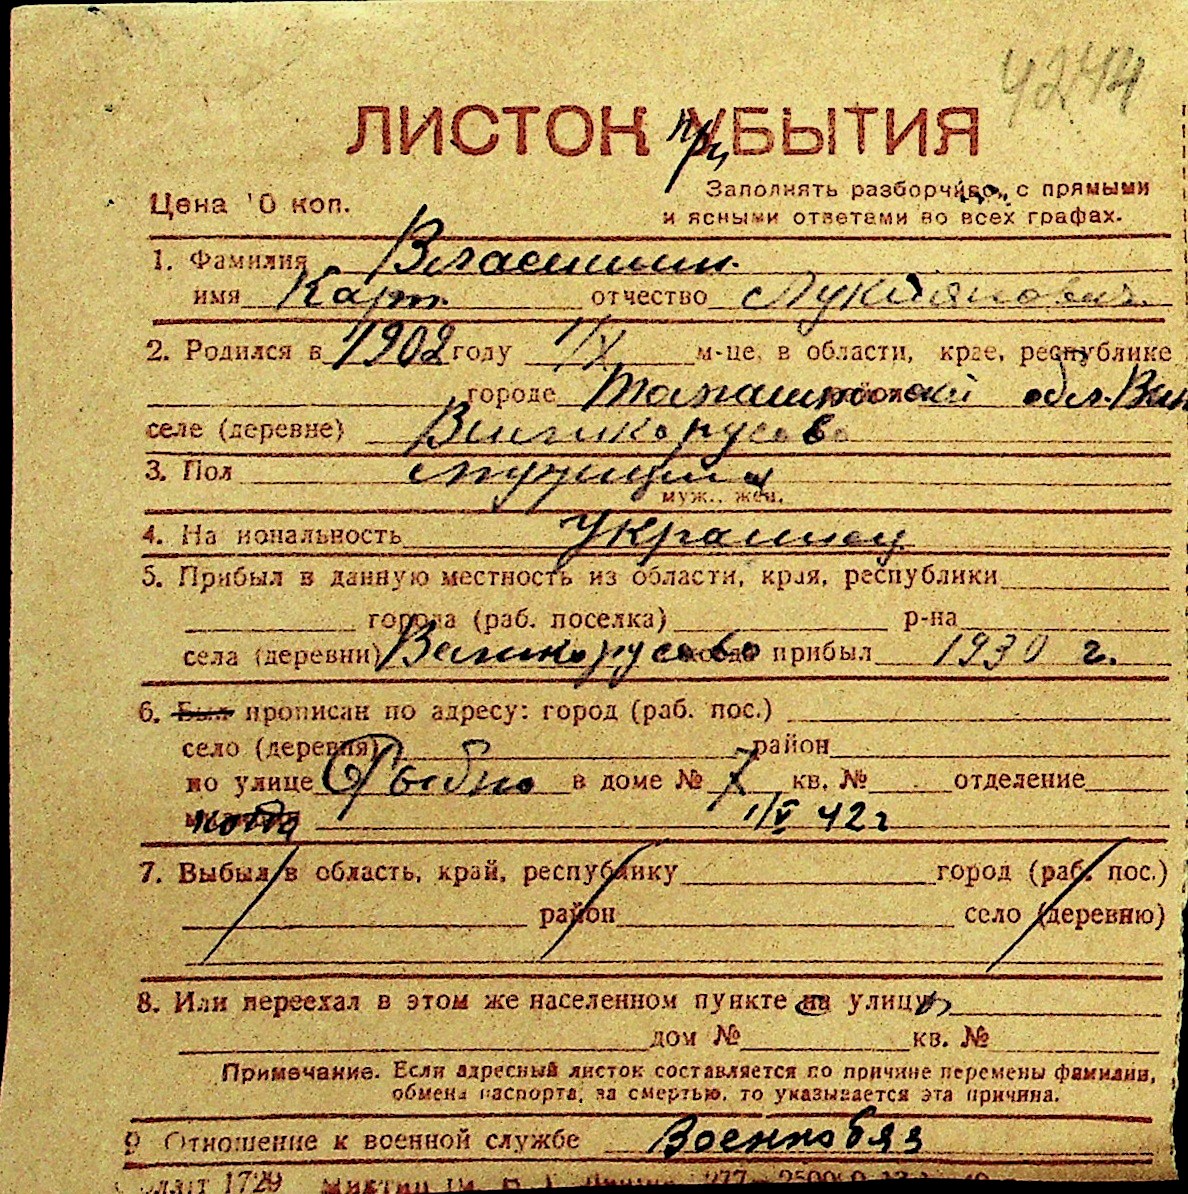 4244
ЛИСТОК при УБЫТИЯ
Цена 10 коп.
Заполнять разборчиво, с прямыми
и ясными ответами во всех графах.
1. Фамилия Власишин.
имя Карп. отчество Лукьянович
2. Родился в 1902 году 1/X м-це, в области, крае, республике
городе Томашпольский обл. Вин
селе (деревне) Виликорусово
3. Пол мужчина
муж., жен.
4. Национальность Украинец
5. Прибыл в данную местность из области, края, республики
города (раб. поселка) р-на
села (деревни) Великорусово когда прибыл 1930 г.
6. Был прописан по адресу: город (раб. пос.)
село (деревня) район
по улице Рыбно в доме № 7 кв. № отделение
когда 1/V 42 г
7. Выбыл в область, край, республику город (раб. пос.)
район село (деревню)
8. Или переехал в этом же населенном пункте на улицу
дом № кв. №
Примечание. Если адресный листок составляется по причине перемены фамилии,
обмена паспорта, за смертью, то указывается эта причина.
9 Отношение к военной службе Военнобяз
1729 277